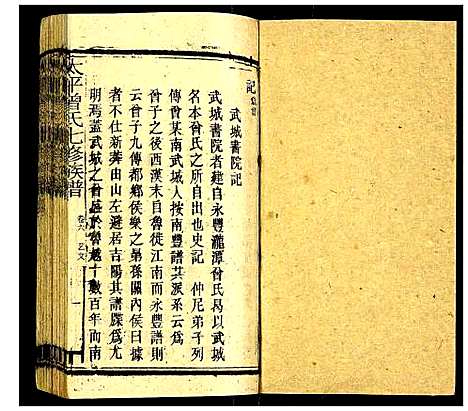 記
武城書院記
武城書院者建自永豐瀧潭曾氏曷以武城
名本曾氏之所自出也史記 仲尼弟子列
傳曾某南武城人按南豐譜其派系云爲
曾子之後西漢末自魯徙江南而永豐譜則
云曾子九傳都鄉侯樂之弟孫關內侯曰據
者不仕新莽由山左避居吉陽其譜牒爲尤
明焉蓋武城之曾居於魯越十數百年而南
太平曾氏七修族譜
卷六 艺文
一